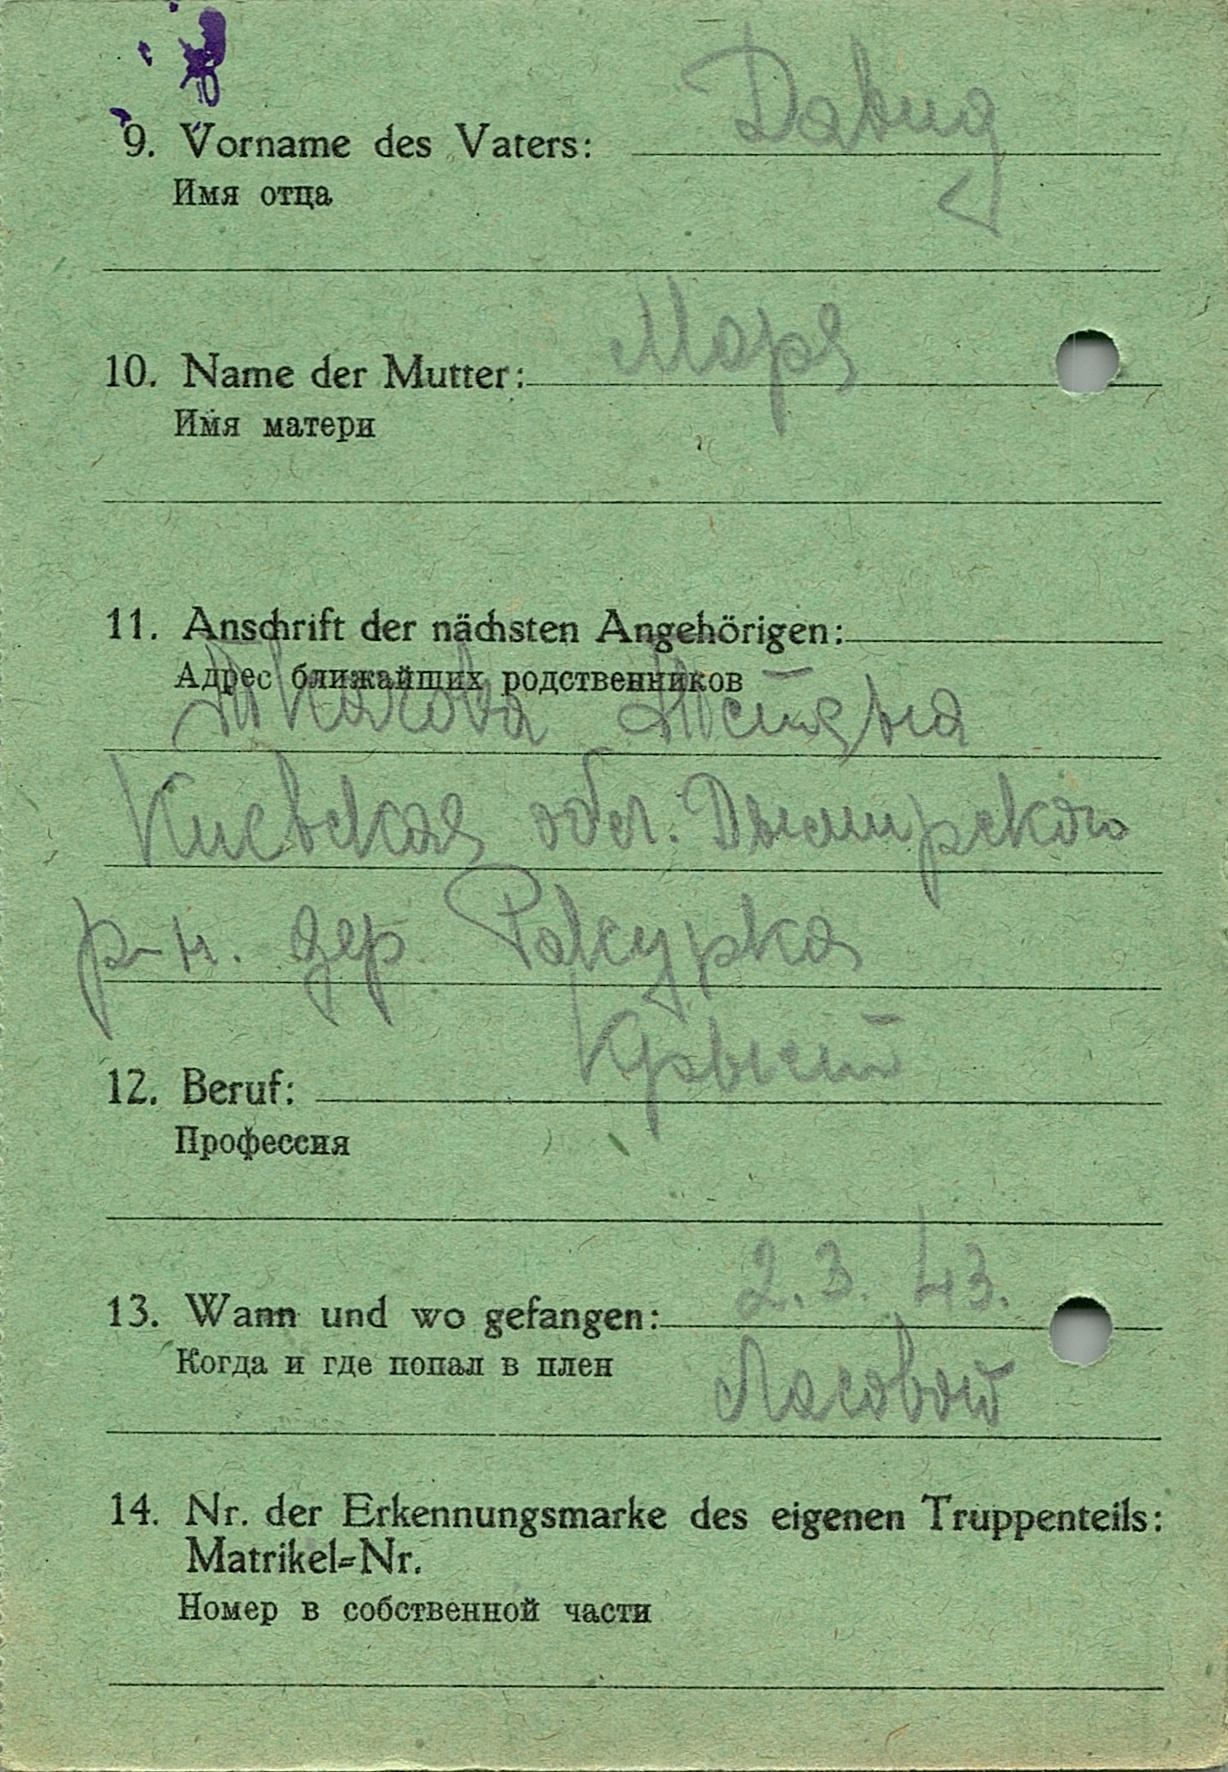 9. Vorname des Vaters: Давид
Имя отца
10. Name der Mutter: Маря
Имя матери
11. Anschrift der nächsten Angehörigen:
Адрес ближайших родственников
Киевская обл. Дымирского
р-н. дер.
12. Beruf:
Профессия
13. Wann und wo gefangen: 2.3.43.
Когда и где попал в плен
Ласовой
14. Nr. der Erkennungsmarke des eigenen Truppenteils:
Matrikel=Nr.
Номер в собственной части